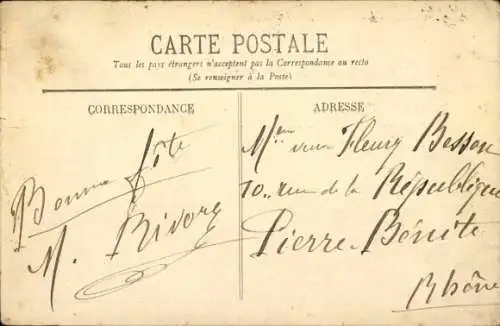 CARTE POSTALE
Tous les pays étrangers n'acceptent pas la Correspondance au recto
(Se renseigner à la Poste)
CORRESPONDANCE
Bonne fête
M. Rivory
ADRESSE
Mme veuve Fleury Besson
70, rue de la République
Pierre-Bénite
Rhône